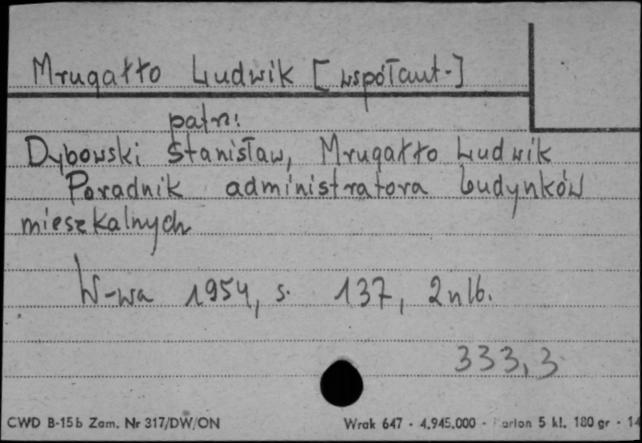 Mrugałło Ludwik [współaut.]
patrz:
Dybowski Stanisław, Mrugałło Ludwik
Poradnik administratora budynków
mieszkalnych
W-wa 1954, s. 137, 2 nlb.
333,3
CWD B-15b Zam. Nr 317/DW/ON Wrak 647 - 4.945.000 - arton 5 kl. 180 gr - 1